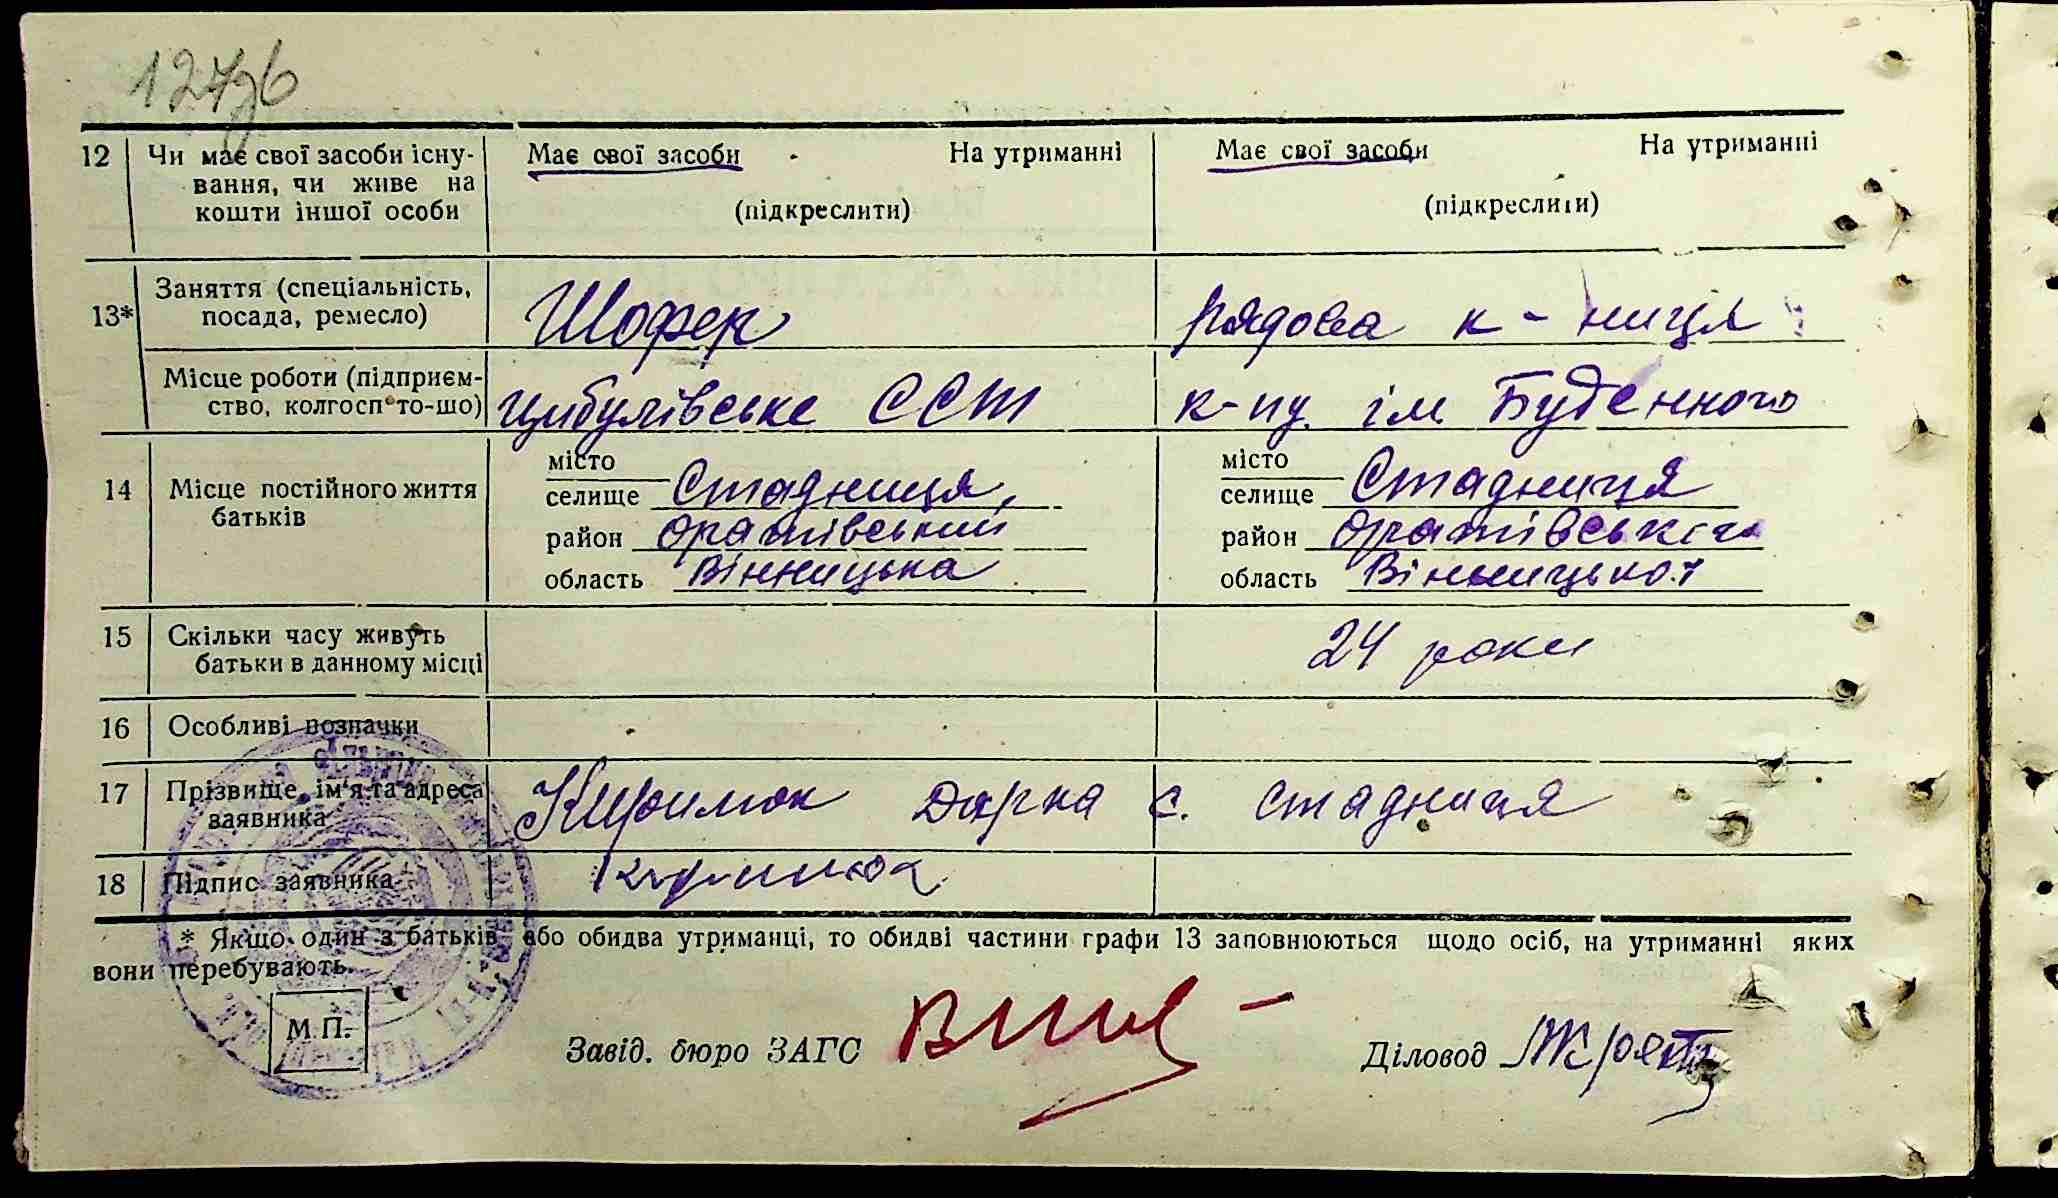 127зб
12 Чи має свої засоби існу- Має свої засоби На утриманні Має свої засоби На утриманні
вання, чи живе на
кошти іншої особи (підкреслити) (підкреслити)
13* Заняття (спеціальність, посада, ремесло) Шофер рядова к-ниця
Місце роботи (підприєм-
ство, колгосп то-що) Цибулівське ССТ к-пу ім Будённого
14 Місце постійного життя батьків
місто місто
селище Стадниця, селище Стадниця
район Оратівський район Оратівського
область Вінницька область Вінницької
15 Скільки часу живуть 24 роки
батьки в данному місці
16 Особливі позначки
17 Прізвище, ім'я та адреса Дарка с. Стадниця
заявника
18 Підпис заявника
* Якщо один з батьків або обидва утриманці, то обидві частини графи 13 заповнюються щодо осіб, на утриманні яких
вони перебувають.
М П.
Завід. бюро ЗАГС Діловод